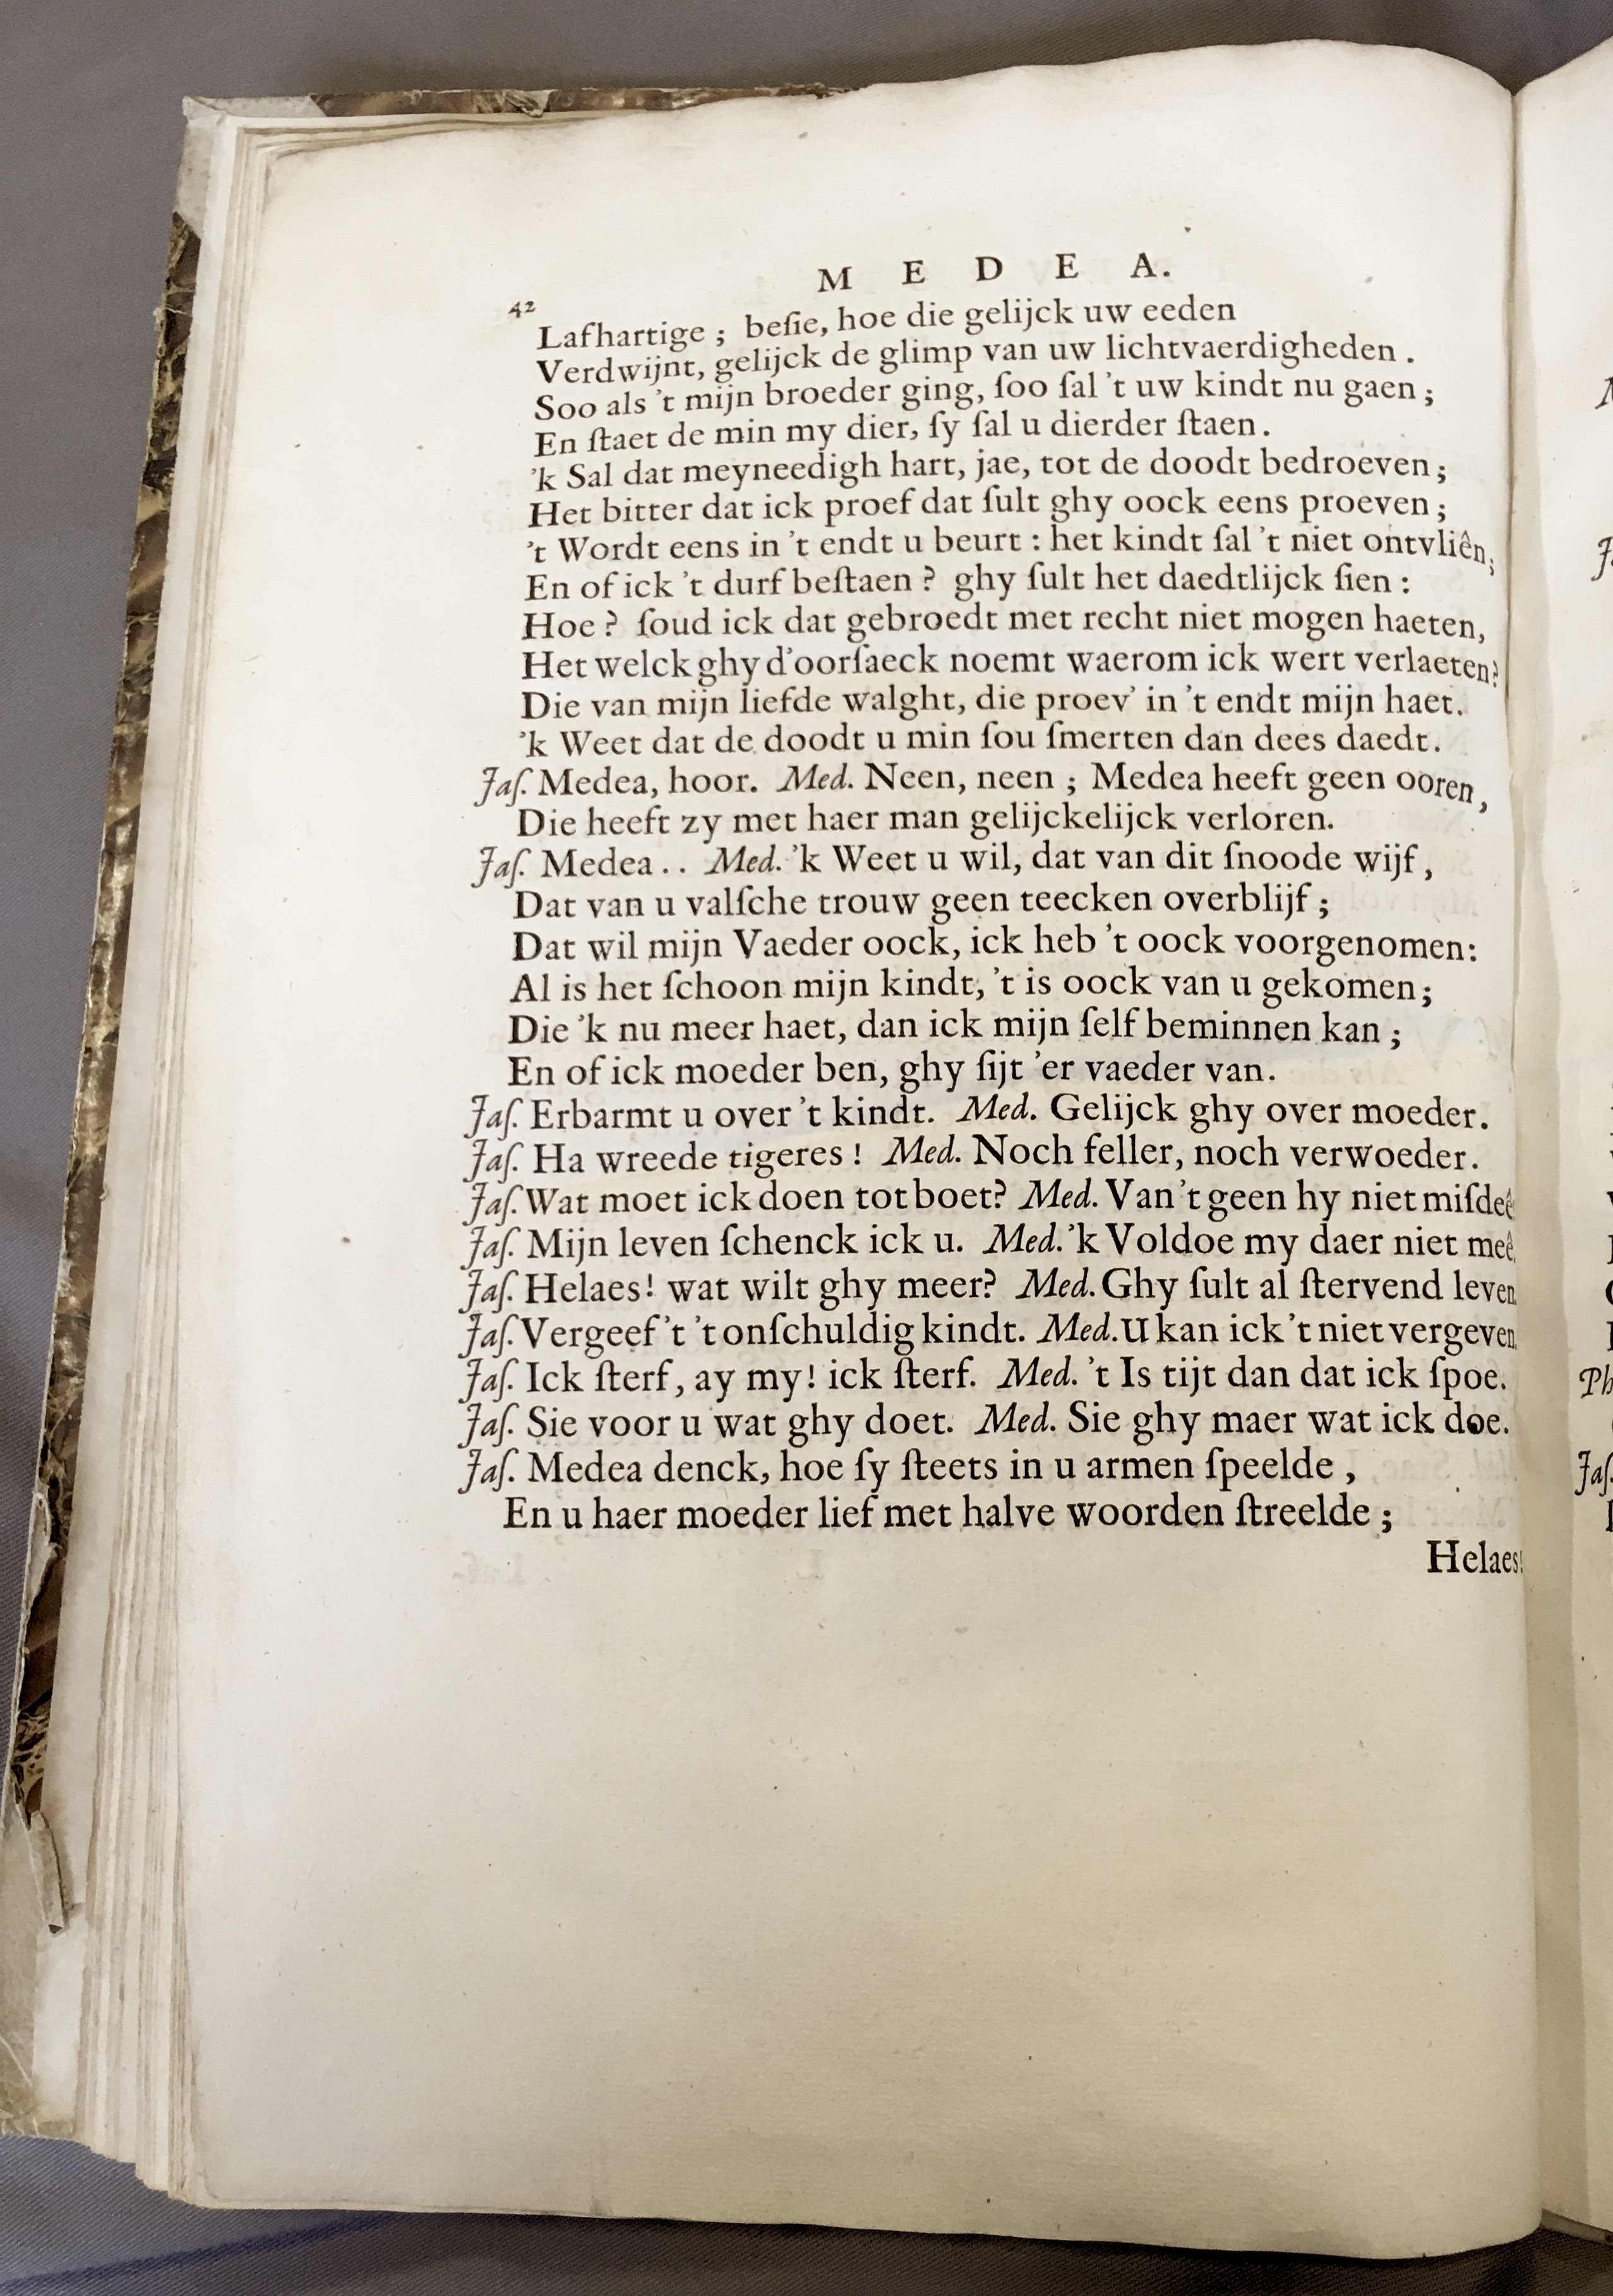 M E D E A.
42
Lafhartige ; beſie, hoe die gelijck uw eeden
Verdwijnt, gelijck de glimp van uw lichtvaerdigheden .
Soo als 't mijn broeder ging, ſoo ſal 't uw kindt nu gaen ;
En ſtaet de min my dier, ſy ſal u dierder ſtaen .
'k Sal dat meyneedigh hart, jae, tot de doodt bedroeven ;
Het bitter dat ick proef dat ſult ghy oock eens proeven ;
't Wordt eens in 't endt u beurt : het kindt ſal 't niet ontvliên ;
En of ick 't durf beſtaen ? ghy ſult het daedtlijck ſien :
Hoe ? ſoud ick dat gebroedt met recht niet mogen haeten,
Het welck ghy d'oorſaeck noemt waerom ick wert verlaeten?
Die van mijn liefde walght, die proev' in 't endt mijn haet.
'k Weet dat de doodt u min ſou ſmerten dan dees daedt.
Jaſ. Medea, hoor. Med. Neen, neen ; Medea heeft geen ooren ,
Die heeft zy met haer man gelijckelijck verloren.
Jaſ. Medea . . Med. 'k Weet u wil, dat van dit ſnoode wijf ,
Dat van u valſche trouw geen teecken overblijf ;
Dat wil mijn Vaeder oock, ick heb 't oock voorgenomen:
Al is het ſchoon mijn kindt, 't is oock van u gekomen;
Die 'k nu meer haet, dan ick mijn ſelf beminnen kan ;
En of ick moeder ben, ghy ſijt 'er vaeder van.
Jaſ. Erbarmt u over 't kindt. Med. Gelijck ghy over moeder.
Jaſ. Ha wreede tigeres ! Med. Noch feller, noch verwoeder.
Jaſ. Wat moet ick doen tot boet? Med. Van 't geen hy niet miſdeê
Jaſ. Mijn leven ſchenck ick u. Med. 'k Voldoe my daer niet meê.
Jaſ. Helaes! wat wilt ghy meer? Med. Ghy ſult al ſtervend leven
Jaſ. Vergeef 't 't onſchuldig kindt. Med. U kan ick 't niet vergeven
Jaſ. Ick ſterf, ay my! ick ſterf. Med. 't Is tijt dan dat ick ſpoe.
Jaſ. Sie voor u wat ghy doet. Med. Sie ghy maer wat ick doe.
Jaſ. Medea denck, hoe ſy ſteets in u armen ſpeelde ,
En u haer moeder lief met halve woorden ſtreelde ;
Helaes!
Ph
Jaſ.